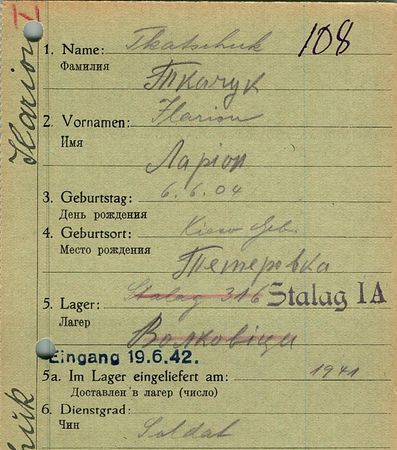 108
1. Name: Tkatschuk
Фамилия
Ткачук
2. Vornamen: Ilarion
Имя
Ларіон
3. Geburtstag: 6.6.04
День рождения
4. Geburtsort: Kiew Geb.
Место рождения
Тетеровка
Stalag 316 Stalag IA
5. Lager:
Лагерь
Волковіци
Eingang 19.6.42.
5a. Im Lager eingeliefert am: 1941
Доставлен в лагерь (число)
6. Dienstgrad:
Чин
Soldat
Ilarion